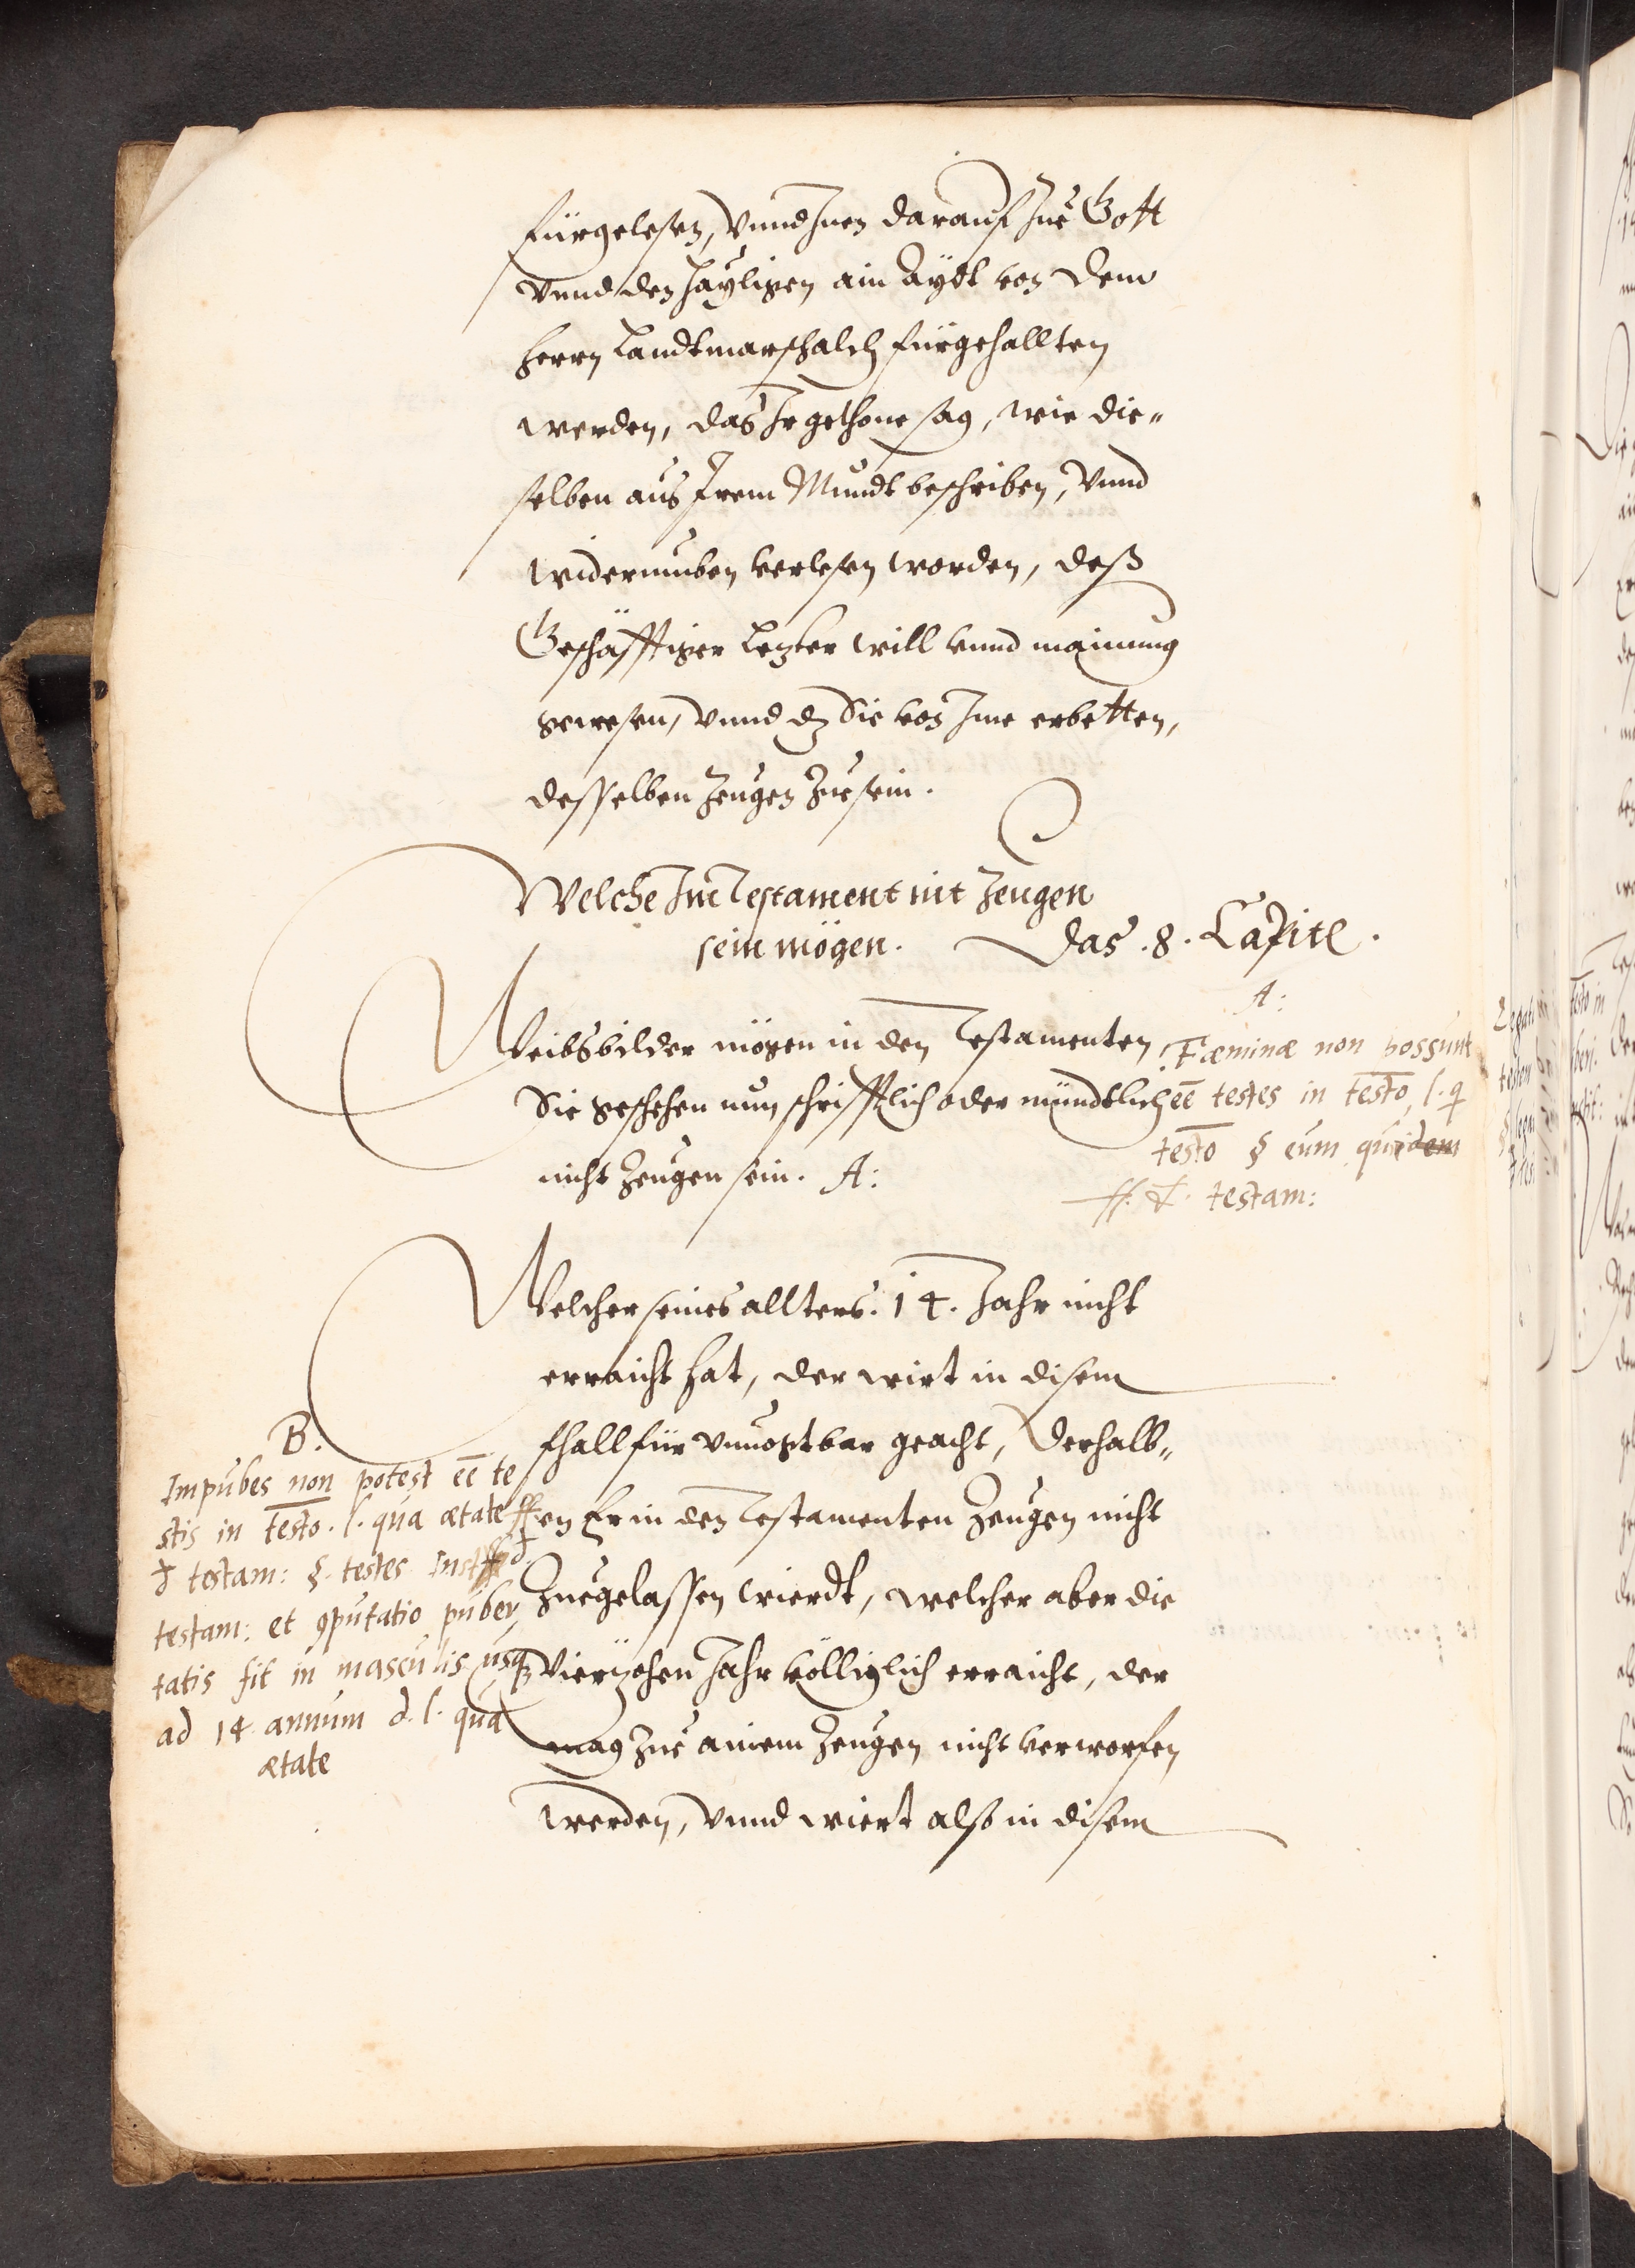 fürgelesen, Vnnd Inen darauf zue Gott
Vnnd den Hayligen ain Aydt von dem
Herrn Landtmarschalch fürgehallten
werden, das Ir gethone sag, wie die„
selben aus Irem Mundt beschriben, Vnnd
widerumben verlesen worden, deß
Geschäfftiger letzter will vnnd mainung
gewesen, Vnnd dz Sie von Ime erbetten,
desselben Zeugen Zue sein.
Welche Im Testament nit Zeugen
sein mögen. Das .8. Capitl.
Weibsbilder mögen in den Testamenten
Sie geschehen nun schrifftlich oder mündtlich
nicht Zeugen sein. A:
A:
Fæminæ non possunt
eē testes in testo, l. q
testo § eum qui dem
ff. d. testam:
Welcher seines allters .14. Jahr nicht
erraicht hat, der wirt in disem
fhall für vnuogtbar geacht, Derhalb„
en Er in den Testamenten Zeugen nicht
Zuegelassen wierdt, welcher aber die
Vierzehen Jahr völliglich erraicht, der
mag zue ainem Zeugen nicht verworfen
werden, Vnnd wiert also in disem
B.
Impubes non potest eē te
stis in testo. l. qua ætate ff
d testam: §. testes Inst d
testam: et 9putatio puber
tatis fit in masculis usq
ad 14 annum d. l. qua
ætate